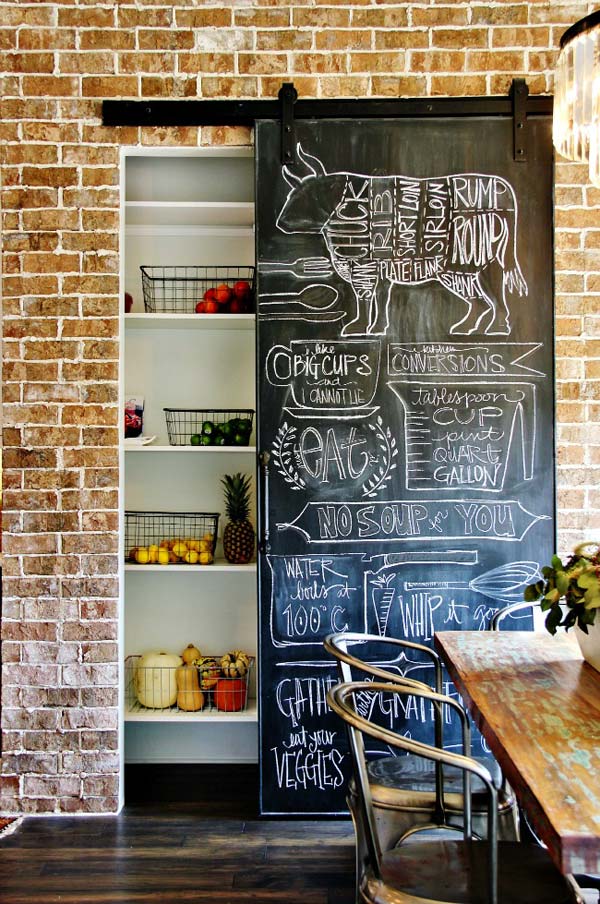 CHUCK RIB SHORT LOIN SIRLOIN RUMP
ROUND
SHANK PLATE FLANK SHANK
i like
BIG CUPS
and
I CANNOT LIE
kitchen
CONVERSIONS
tablespoon
CUP
pint
QUART
GALLON
eat
NO SOUP for YOU
WATER
boils at
100° C
WHIP it good
GATHER
eat your
VEGGIES